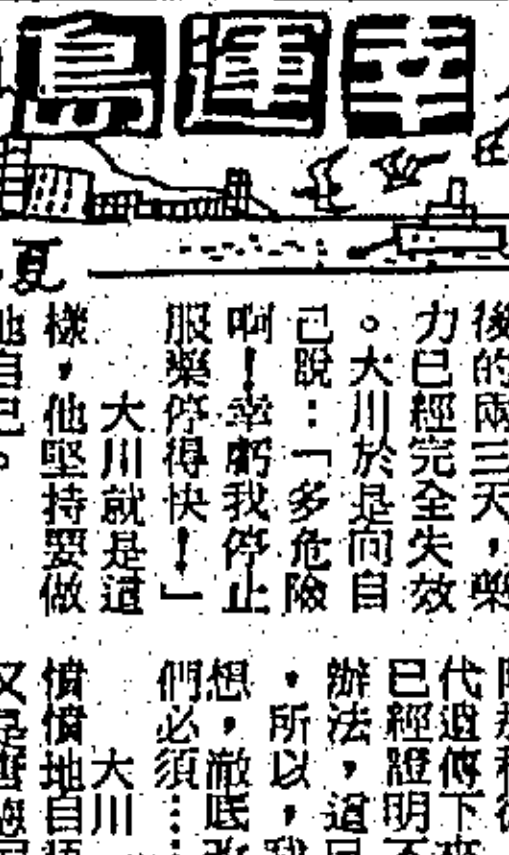 幸運鳥
夏
後的兩三天，藥
力已經完全失效
。大川於是向自
己說：「多危險
啊！幸虧我停止
服藥停得快！」
大川就是這
樣，他堅持要做
他自己。
代遺傳下來
已經證明不
辦法，這
，所以，我
想，澈底改
們必須…
大川
憤憤地自語
又是